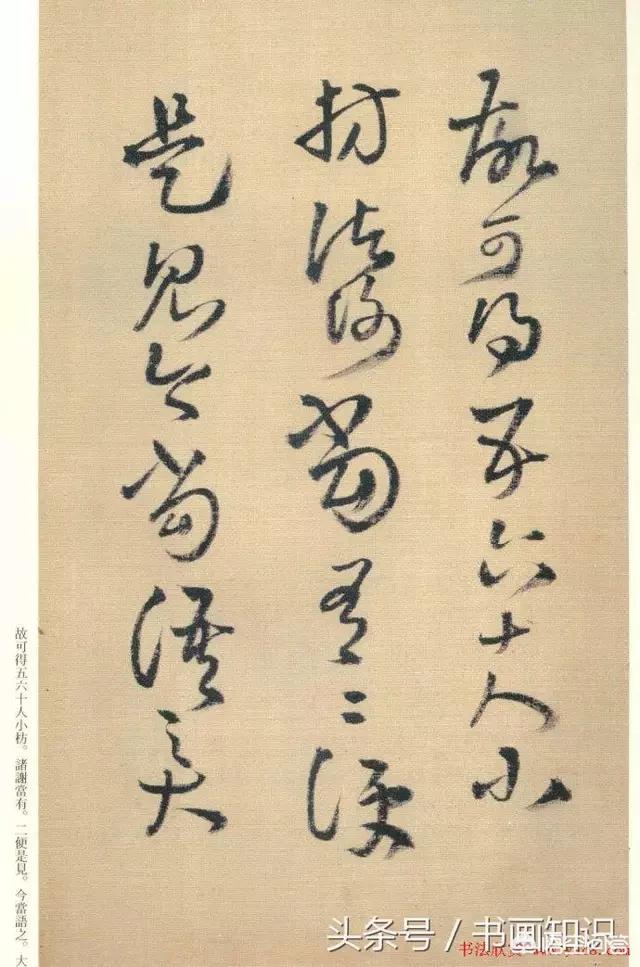 故可得五六十人小
枋諸謝當有二便
是見今當語之大
故可得五六十人小枋。諸謝當有。二便是見。今當語之。大
头条号／书画知识
书法欣赏